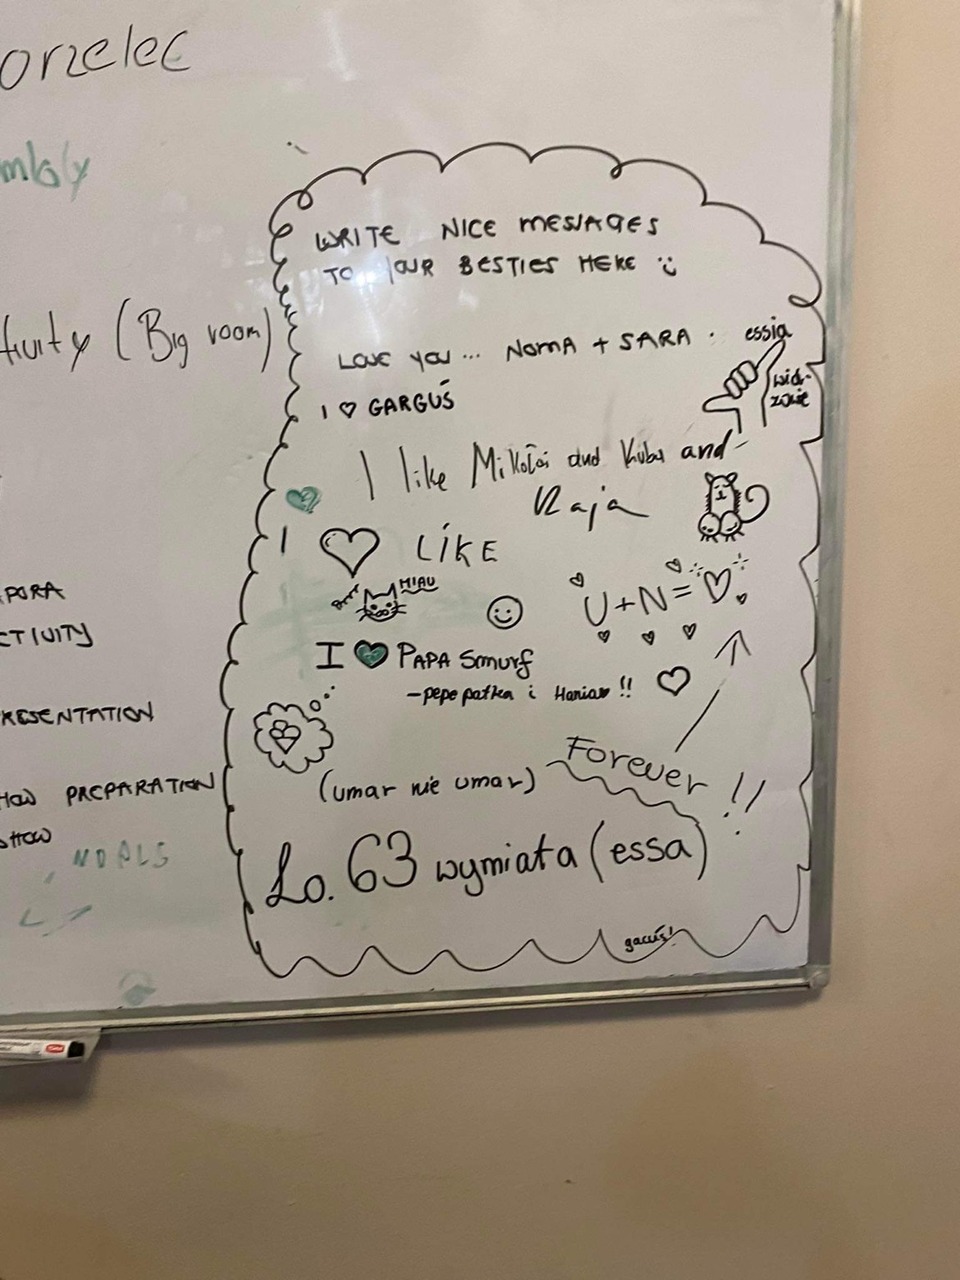 orzelec
mbly
tivity (Big room)
PORA
CTIVITY
RESENTATION
HOW PREPARATION
SHOW
WRITE NICE MESSAGES
TO YOUR BESTIES HERE
LOVE YOU... NOMA + SARA.
essia
widzowie
I ♡ GARGUŚ
I like Mikołaj and Kuba and
Kaja
I ♡ LIKE
MIAU
U+N=♡
I ♥ PAPA Smurf
-pepe patka i Hania !!
Forever !!
(umar nie umar)
Lo. 63 wymiata (essa)
gacuś!